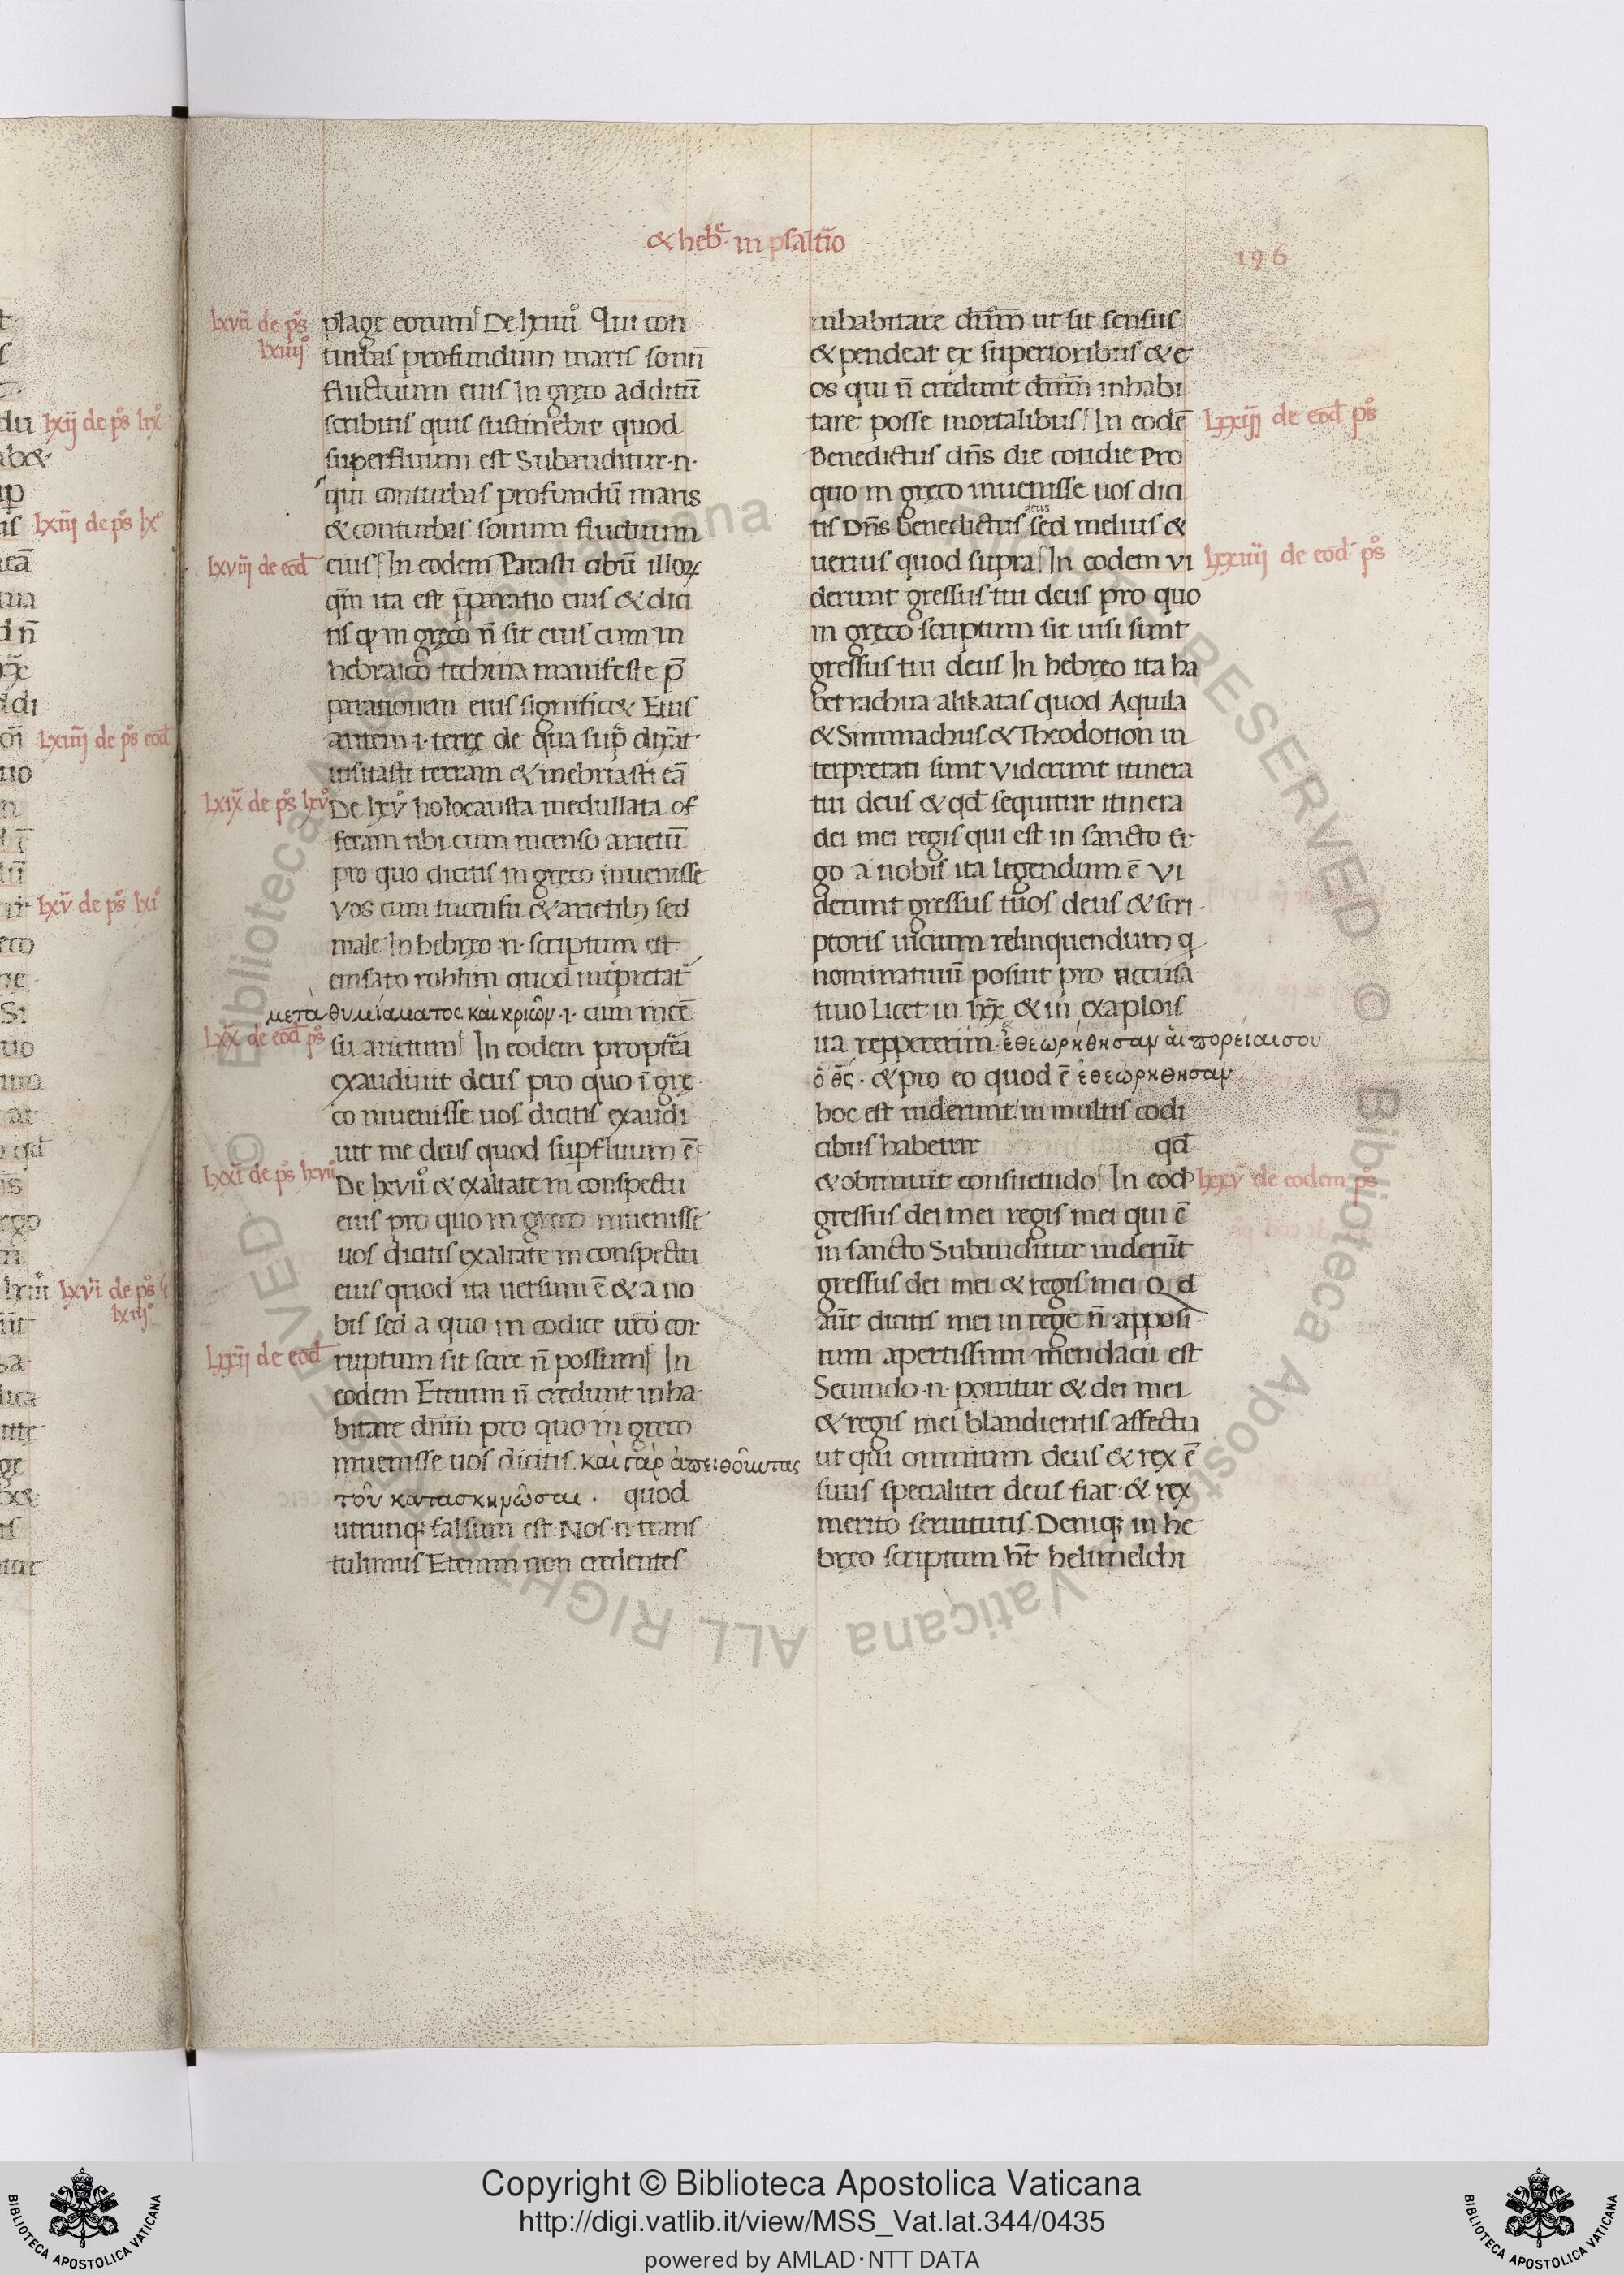 & heb̅ᵉ· in psaltı̅o
196
lxvii de ps̊
lxiiij°
plage eorum De lxiiii° Qui con
turbas profundum maris sonu̅
fluctuum eius In greco additu̅
scribitis quis sustinebit quod
superfluum est Subauditur·n·
qui conturbas profundu̅ maris
& conturbas sonum fluctuum
lxviij de eod̅
eius In eodem Parasti cibu̅ illoꝝ
qm̅ ita est p̅paratio eius & dici
tis ꝙ in greco n̅ sit eius cum in
hebraico techina manifeste p̅
parationem eius signific& Eius
autem ·i· terre de qua sup̅ dix̅at
uisitasti terram & inebriasti ea̅
lxix̅ de ps̊ lxv°
De lxv° holocausta medullata of
feram tibi cum incenso arietu̅
pro quo dicitis in greco inuenisse
vos cum incensu & arietibꝫ sed
male In hebreo ·n· scriptum est
em sato rohlim quod int̅pretat̅
μετὰ θυμιάματος καὶ κριῶν ·i· cum ince̅
lxx̅ de eod̅ ps̊
su arietum In eodem propt̅ea
exaudiuit deus pro quo i̅ gre
co inuenisse uos dicitis exaudi
uit me deus quod sup̲fluum e̅
lxxi̅ de ps̊ lxvii°
De lxvii° & exaltate in conspectu
eius pro quo in greco inuenisse
uos dicitis exaltate in conspectu
eius quod ita uersum e̅ & a no
bis sed a quo in codice ur̅o cor
lxxij de eod̅
ruptum sit scire n̅ possum In
eodem Etenim n̅ credunt inha
bitare dn̅m pro quo in greco
inuenisse uos dicitis. καὶ γὰρ ἀπειθοῦντας
τοῦ κατασκηνῶσαι . quod
utrunqꝫ falsum est. Nos ·n· trans
tulimus Etenim non credentes
inhabitare dn̅m ut sit sensus
& pendeat ex superioribus & e
os qui n̅ credunt dn̅m inhabi
tare posse mortalibus In eode̅
lxxiij de eod̅ ps̊
Benedictus dn̅s die cotidie Pro
quo in greco inuenisse uos dici
deus
tis Dn̅s Benedictus sed melius &
uerius quod supra In eodem vi
lxxiiij de eod̅ ps̊
derunt gressus tui deus pro quo
in greco scriptum sit uisi sunt
gressus tui deus In hebreo ita ha
bet rachua alikatas quod Aquila
& Simmachus & Theodotion in
terpretati sunt viderunt itinera
tui deus & qd̅ sequitur itinera
dei mei regis qui est in sancto Er
go a nobis ita legendum e̅ Vi
derunt gressus tuos deus & scri
ptoris uicium relinquendum q
nominatiuu̅ posuit pro accusa
tiuo Licet in lxx̅ & in exaplois
ita reppererim · ἐθεωρήθησαν αἱ πορεῖαι σου
ὁ θ̅ς . & pro eo quod e̅ ἐθεωρήθησαν
hoc est uiderunt in multis codi
cibus habetur qd̅
& obtinuit consuetudo In eod
lxxv̅ de eodem ps̊
gressus dei mei regis mei qui e̅
in sancto Subauditur uideru̅t
gressus dei mei & regis mei Qd
au̅t dicitis mei in rege n̅ apposi
tum apertissimi mendacii est
Secundo ·n· ponitur & dei mei
& regis mei blandientis affectu
ut qui omnium deus & rex e̅
suus specialiter deus fiat & rex
merito seruitutis. Deniqꝫ in he
breo scriptum h̅t helimelchi
t
du lxij de ps̊ lix°
ab&
is lxiij de ps̊ lx°
ea̅
d n̅
di
lxiiij de ps̊ eod
uo
lxv̅ de ps̊ lxi°
Si
uo
qd̅
rgo
lxiii° lxvi̅ de ps̊
lxiij°
Copyright © Biblioteca Apostolica Vaticana
http://digi.vatlib.it/view/MSS_Vat.lat.344/0435
powered by AMLAD·NTT DATA
BIBLIOTECA APOSTOLICA VATICANA
BIBLIOTECA APOSTOLICA VATICANA
© Biblioteca Apostolica Vaticana ALL RIGHTS RESERVED